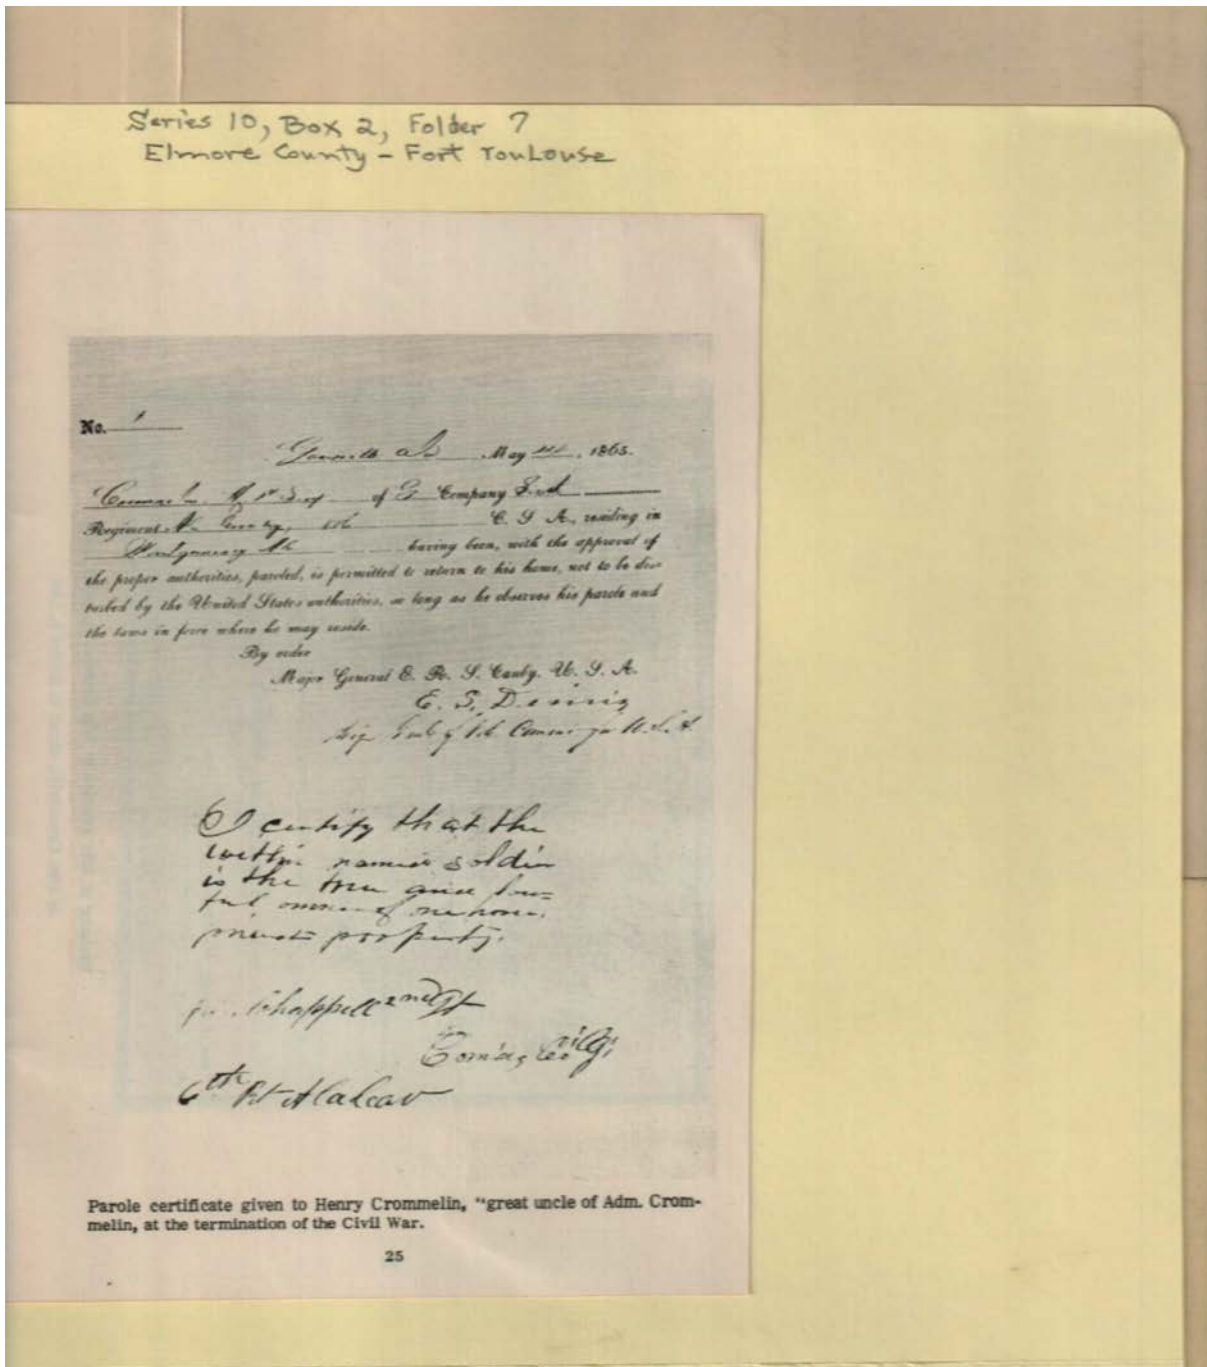 Series 10, Box 2, Folder 7
Elmore County - Fort Toulouse
No. 1
May 1865.
of Company
Regiment C. S. A., residing in
Montgomery Al having been, with the approval of
the proper authorities, paroled, is permitted to return to his home, not to be dis-
turbed by the United States authorities, so long as he observes his parole and
the laws in force where he may reside.
By order
Major General E. R. S. Canby, U. S. A.
E. S. Dennis
Brig U. S. A.
I certify that the
within named soldier
is the true and law=
ful owner of one horse,
private property.
Chappell 2nd Lt
Com'dg Co.
6th Rt Ala Cav
Parole certificate given to Henry Crommelin, "great uncle of Adm. Crom-
melin, at the termination of the Civil War.
25